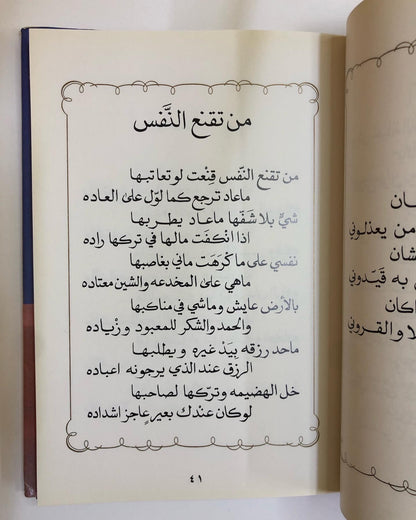 من تقنع النَّفس
من تقنع النّفس قِنْعت لو تعاتبها
ماعاد ترجع كما لوّل على العاده
شيٍّ بلا شفّها ماعاد يطربها
اذا انْكفَت مالها في تركها راده
نفسي على ماكرهَت ماني بغاصبها
ماهي على المخدعه والشين معتاده
بالأرض عايش وماشي في مناكبها
والحمد والشكر للمعبود وزْياده
ماحد رزقه بِيَدْ غيره ويطلبها
الرزق عند الذي يرجونه اعباده
خل الهضيمه وترْكها لصاحبها
لوكان عندك بعيرٍ عاجز اشداده
٤١
ان
من يعذلوني
شان
به قَيّدوني
اكان
لا والقروني